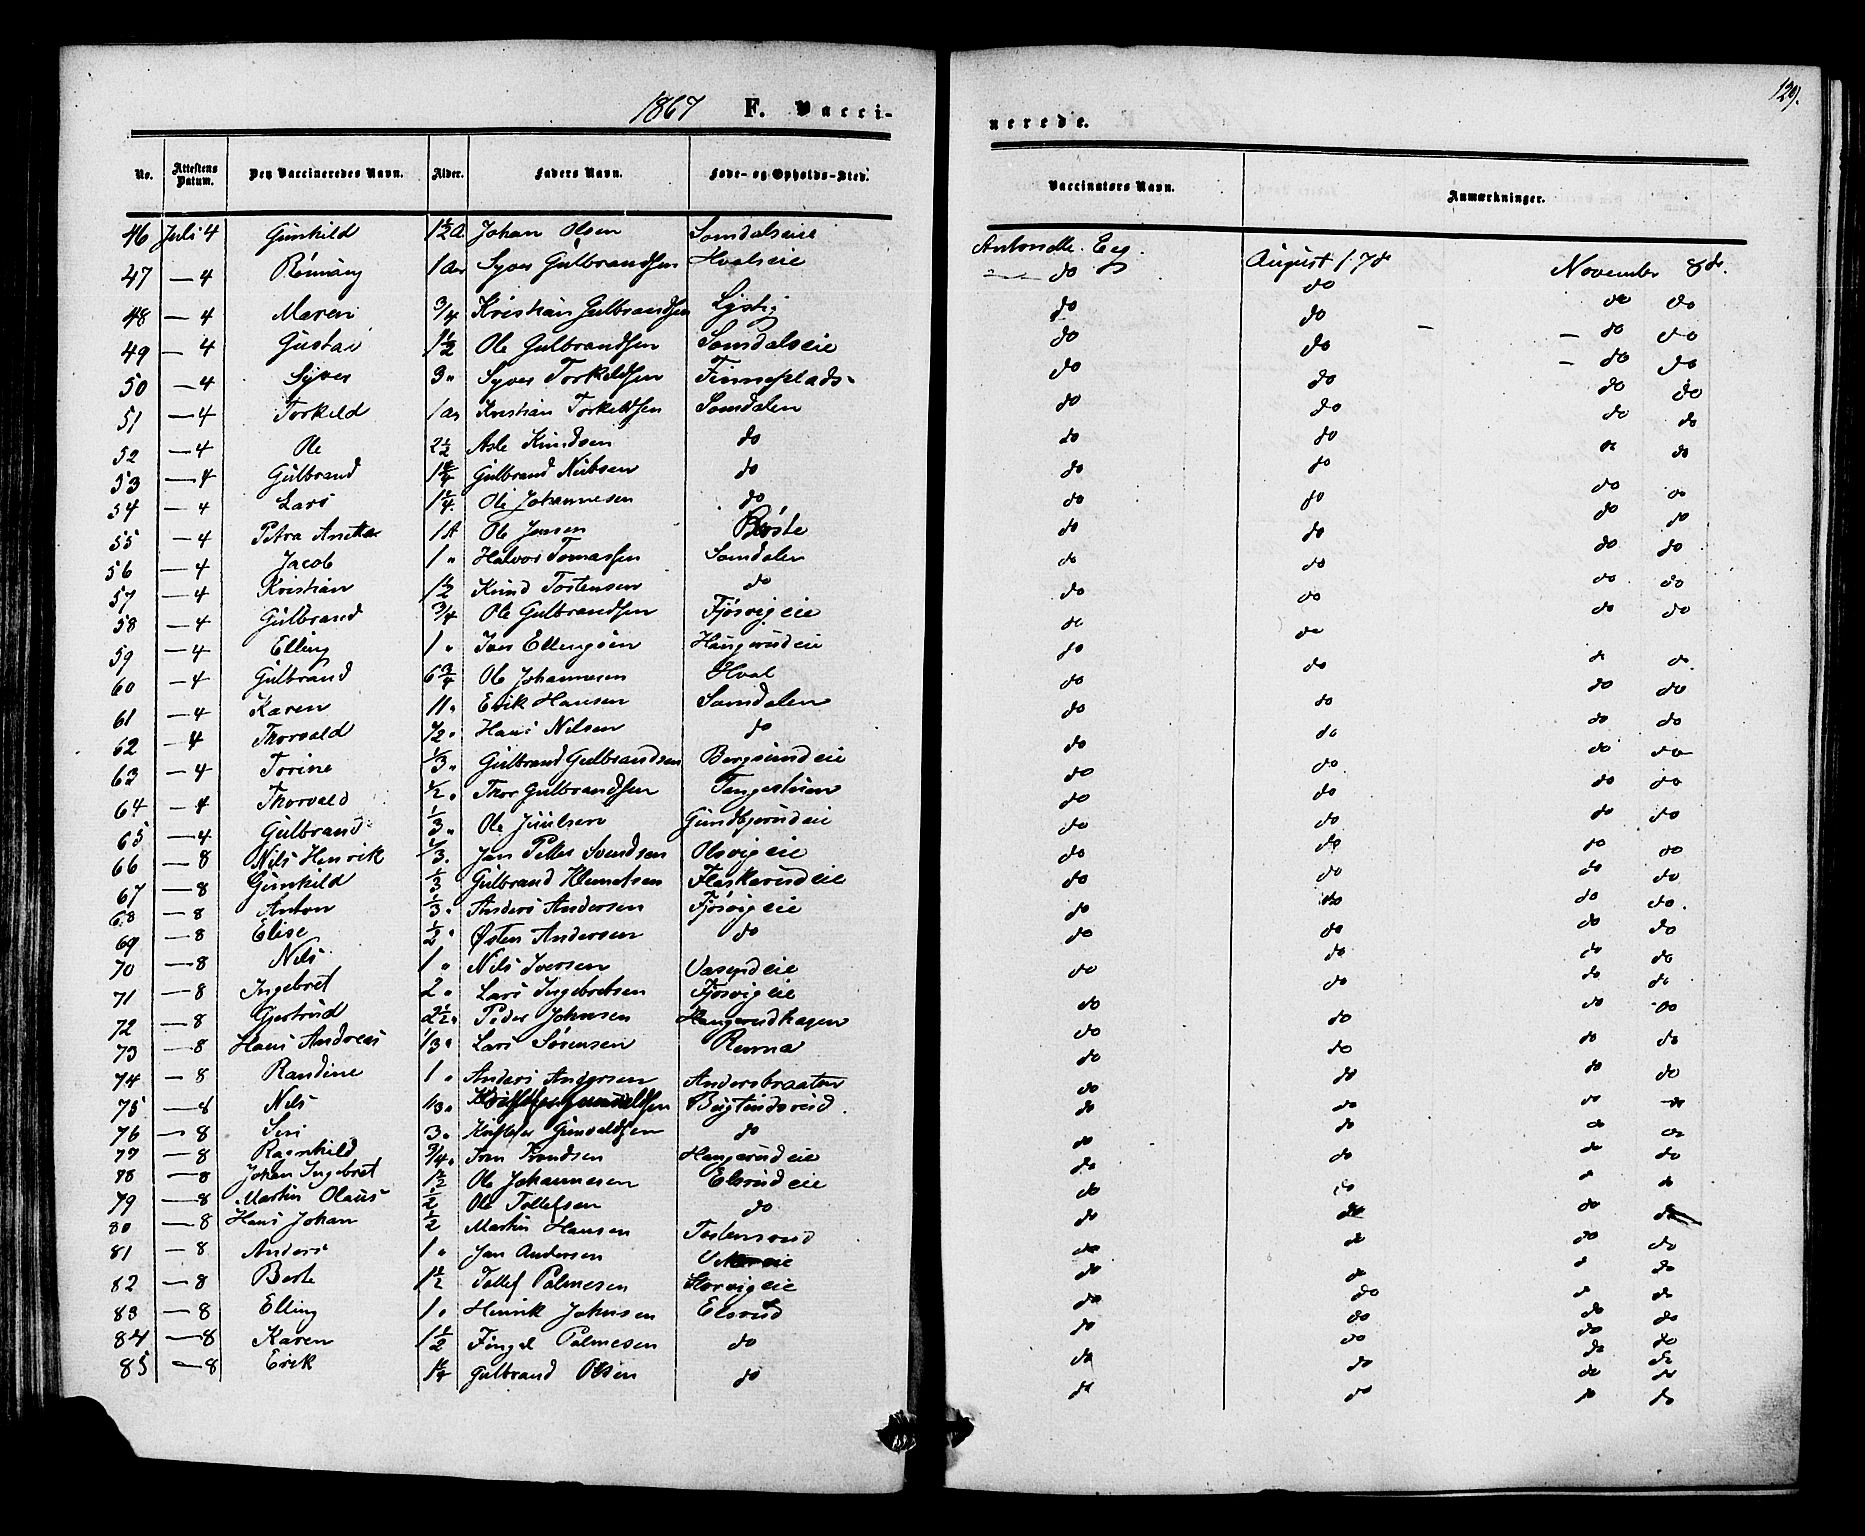 1867 F. Vacci-
nerede.
129.
No. Attestens Datum. Den Vaccineredes Navn. Alder. Faders Navn. Føde- og Opholds-Sted. Vaccinators Navn. Anmærkninger.
46 Juli 4 Gunhild 1½ A Johan Olsen Somdalseie Antonette Eeg August 17de November 8de.
47 — 4 1 Aar Syver Gulbrandsen Hvalseie do do do do
48 — 4 Maren 3/4 Kristian Gulbrandsen Lystig do do do do
49 — 4 Gustav 1½ Ole Gulbrandsen Somdalseie do do do do
50 — 4 Syver 3 " Syver Torkeldsen Finneplads do do do do
51 — 4 Torkild 1 Aar Kristian Torkeldsen Somdalen do do do do
52 — 4 Ole 2½ Asle Knudsen do do do do do
53 — 4 Gulbrand 1¼ Gulbrand Nubsen do do do do do
54 — 4 Lars 1¼ Ole Johannesen do do do do do
55 — 4 Petra 1 A Ole Jensen Børte do do do do
56 — 4 Jacob 1 " Halvor Tomassen Somdalen do do do do
57 — 4 Kristian 1½ Knud Tostensen do do do do do
58 — 4 Gulbrand 3/4 Ole Gulbrandsen Fjøsvigeie do do do do
59 — 4 Elling 1 " Iver Ellingsen Haugerudeie do do do do
60 — 4 Gulbrand 6¾ Ole Johannesen Hval do do do do
61 — 4 Karen 11 " Erik Hansen Somdalen do do do do
62 — 4 Thorvald ½ " Hans Nilsen do do do do do
63 — 4 Torine 1/3 " Gulbrand Gulbrandsen Bergsundeie do do do do
64 — 4 Thorvald ½ " Thor Gulbrandsen do do do do
65 — 4 Gulbrand 1/3 " Ole Juulsen Gundbjørudeie do do do do
66 — 8 Nils Henrik 1/3 " Jan Petter Svendsen Olsvigeie do do do do
67 — 8 Gunhild 1/3 Gulbrand Klemetsen Flaskerudeie do do do do
68 — 8 Anton 1/3 " Anders Andersen Fjøsvigeie do do do do
69 — 8 Elise ½ " Østen Andersen do do do do do
70 — 8 Nils 1 " Nils Iversen Vasendeie do do do do
71 — 8 Ingebret 2 " Lars Ingebretsen Fjøsvigeie do do do do
72 — 8 Gjertrud 2½ " Peder Johnsen Haugerudhagen do do do do
73 — 8 Hans Andreas 1/3 " Lars Sørensen do do do do
74 — 8 Randine 1 " Anders Andersen Andersbraaten do do do do
75 — 8 Nils 1/3 " do do do do
76 — 8 Siri 3 " Kristofer Gunvaldsen do do do do do
77 — 8 Ragnhild 3/4 " Haugerudeie do do do do
78 — 8 Johan Ingebret 1½ Ole Johannesen Elsrudeie do do do do
79 — 8 Martin Olaus ½ Ole Tollefsen do do do do do
80 — 8 Hans Johan ½ Martin Hansen Tostensrud do do do do
81 — 8 Anders 1 " Jan Andersen do do do do
82 — 8 Berte 1½ Tollef Palmesen Storvigeie do do do do
83 — 8 Elling 1 " Henrik Johnsen Elsrud do do do do
84 — 8 Karen 1½ Fingal Palmesen do do do do do
85 — 8 Erik 1¼ Gulbrand Olsen do do do do do